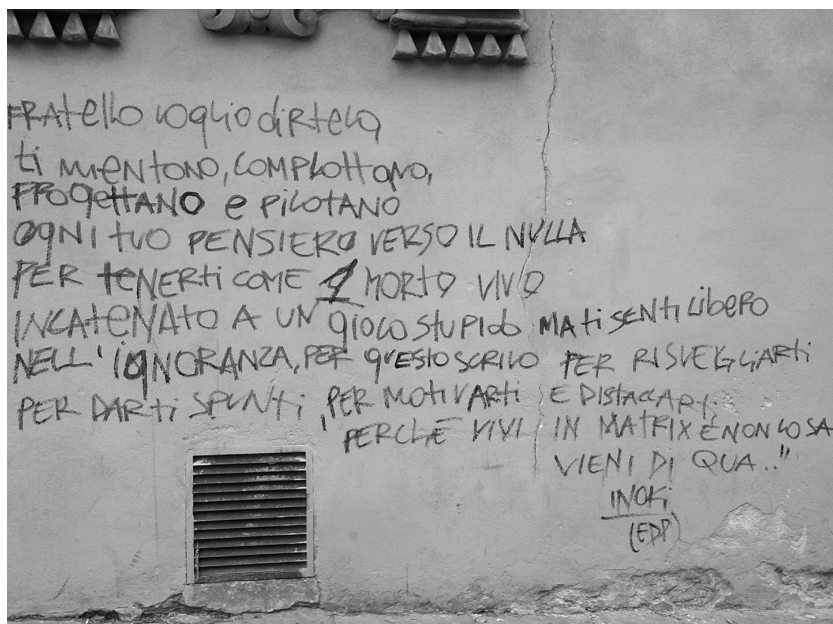 FRAtello voglio diRtelo
ti mentono, COMPlottano,
PROgettANO e PilotANO
OgNI tUO PENSIERO VERSO IL NULLA
PER tENERti COME 1 MORTO VIVO
INCAtENAtO A UN gioco stupido MA ti SENti libero
NELL'IgNORANZA, PER questo SCRIVO PER RISVEGLIARti
PER DARti SPUNti, PER MOtiVARti E DISTACCARti
PERCHÉ VIVI IN MATRIX E NON LO SA
VIENI DI QUA.."
INOKi
(EDP)